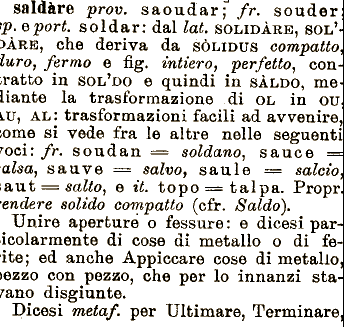 saldàre prov. saoudar; fr. souder;
sp. e port. soldar: dal lat. SOLIDÀRE, SOL'-
DÀRE, che deriva da SÒLIDUS compatto,
duro, fermo e fig. intiero, perfetto, con-
tratto in SOL'DO e quindi in SÀLDO, me-
diante la trasformazione di OL in OU,
AU, AL: trasformazioni facili ad avvenire,
come si vede fra le altre nelle seguenti
voci: fr. soudan = soldano, sauce =
salsa, sauve = salvo, saule = salcio,
saut = salto, e it. topo = talpa. Propr.
rendere solido compatto (cfr. Saldo).
Unire aperture o fessure: e dicesi par-
ticolarmente di cose di metallo o di fe-
rite; ed anche Appiccare cose di metallo,
pezzo con pezzo, che per lo innanzi sta-
vano disgiunte.
Dicesi metaf. per Ultimare, Terminare,